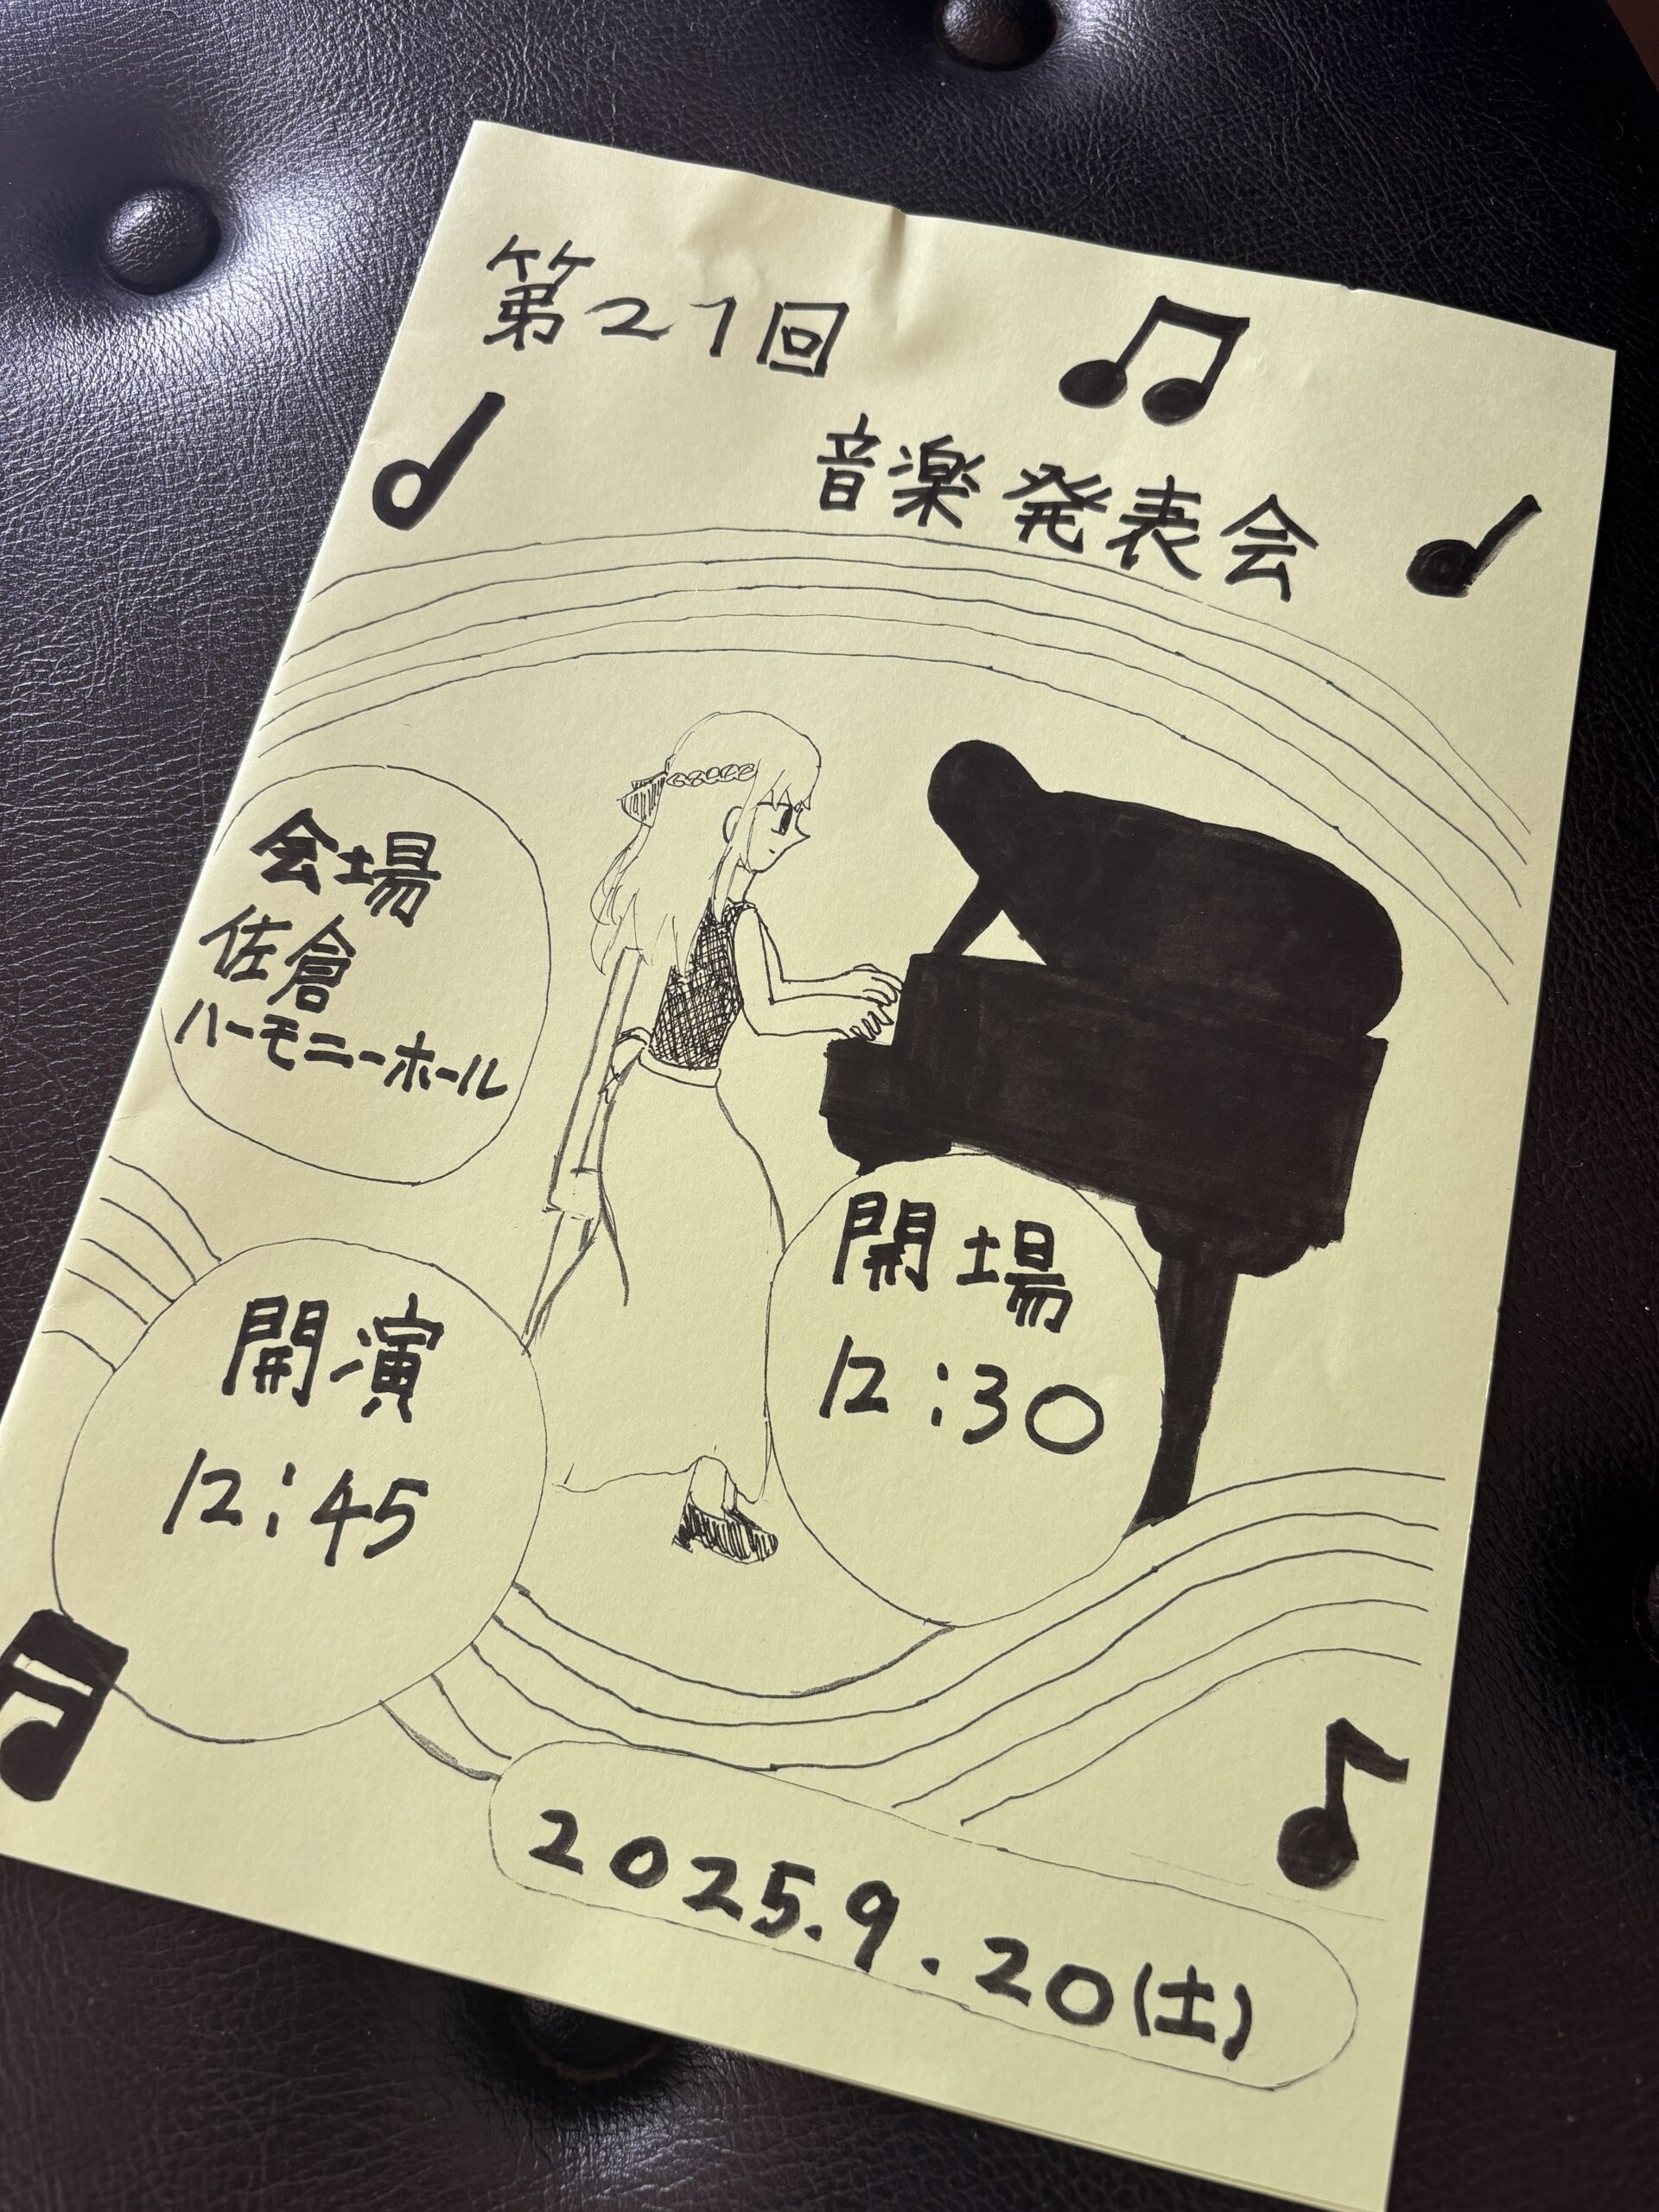 第21回
音楽発表会
会場
佐倉
ハーモニーホール
開場
12:30
開演
12:45
2025.9.20(土)